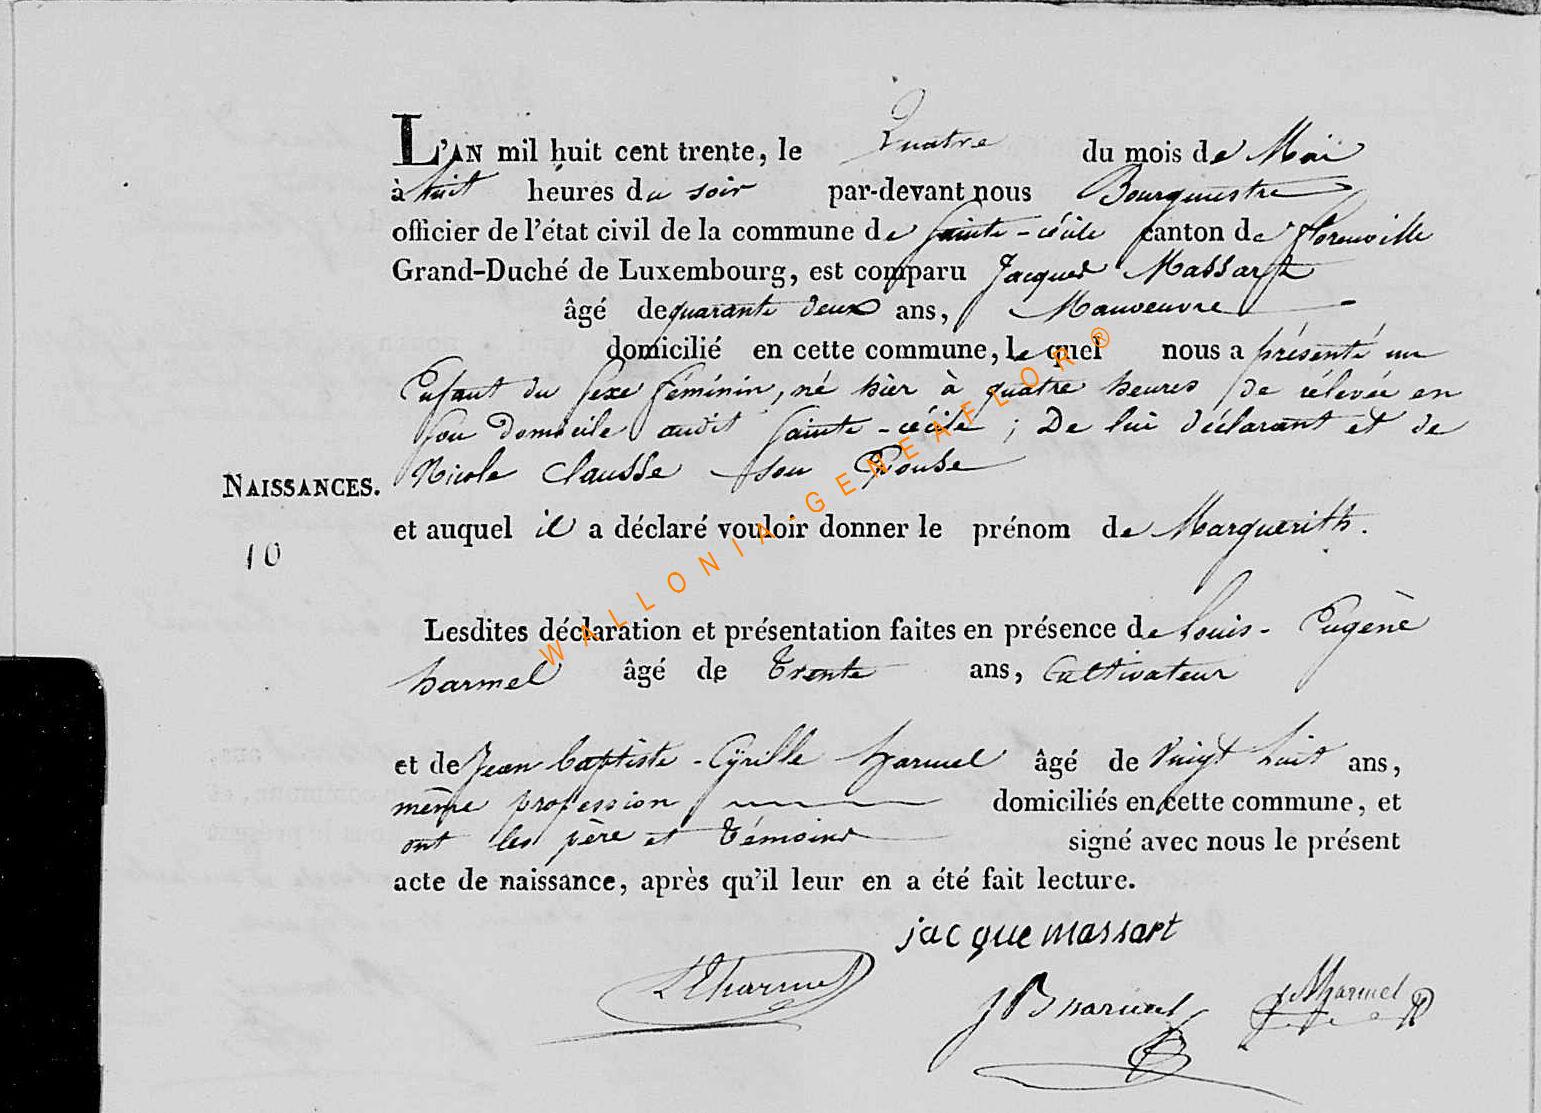 L'AN mil huit cent trente, le Quatre du mois de Mai
à huit heures du soir par-devant nous Bourguestre
officier de l'état civil de la commune de Sainte-cécile canton de florenville
Grand-Duché de Luxembourg, est comparu Jacques Massart
âgé de quarante deux ans, Manoeuvre
domicilié en cette commune, le quel nous a présenté un
Enfant du sexe féminin, né hier à quatre heures de rélevée en
son domicile audit Sainte-cécile ; De lui déclarant et de
Nicole Clausse son Epouse
NAISSANCES.
et auquel il a déclaré vouloir donner le prénom de Marguerith.
10
Lesdites déclaration et présentation faites en présence de Louis-Eugène
harmel âgé de Trente ans, Cultivateur
et de Jean baptiste-Cÿrille harmel âgé de Vingt huit ans,
même profession domiciliés en cette commune, et
ont les père et Témoins signé avec nous le présent
acte de naissance, après qu'il leur en a été fait lecture.
jacque massart
LEharmel
JBharmel
harmel
WALLONIA-GENEAFLOR®